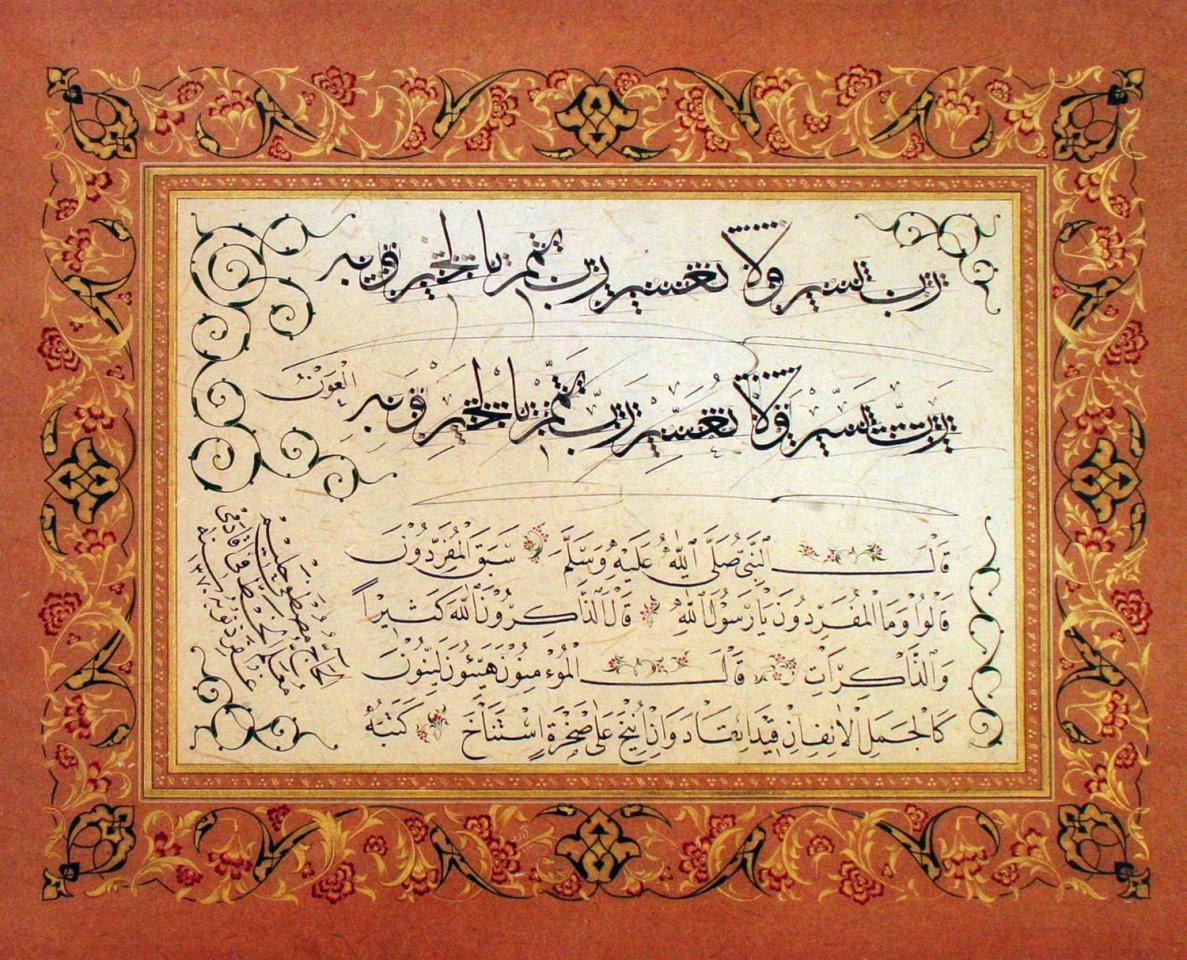 رب يسر ولا تعسر رب تمم بالخير وبه
رَبِّ يَسِّرْ وَلَا تُعَسِّرْ رَبِّ تَمِّمْ بِالْخَيْرِ وَبِهِ
الْعَوْنُ
قَالَ النَّبِيُّ صَلَّى اللّٰهُ عَلَيْهِ وَسَلَّمَ سَبَقَ الْمُفَرِّدُونَ
قَالُوا وَمَا الْمُفَرِّدُونَ يَا رَسُولَ اللّٰهِ قَالَ الذَّاكِرُونَ اللّٰهَ كَثِيرًا
وَالذَّاكِرَاتِ وَقَالَ الْمُؤْمِنُونَ هَيِّنُونَ لَيِّنُونَ
كَالْجَمَلِ الْاَنِفِ اِنْ قِيدَ اِنْقَادَ وَاِنْ اُنِيخَ عَلَى صَخْرَةٍ اسْتَنَاخَ كَتَبَهُ
الحاج مصطفى حليم
معلم الخط في
غفر ذنوبه سنه